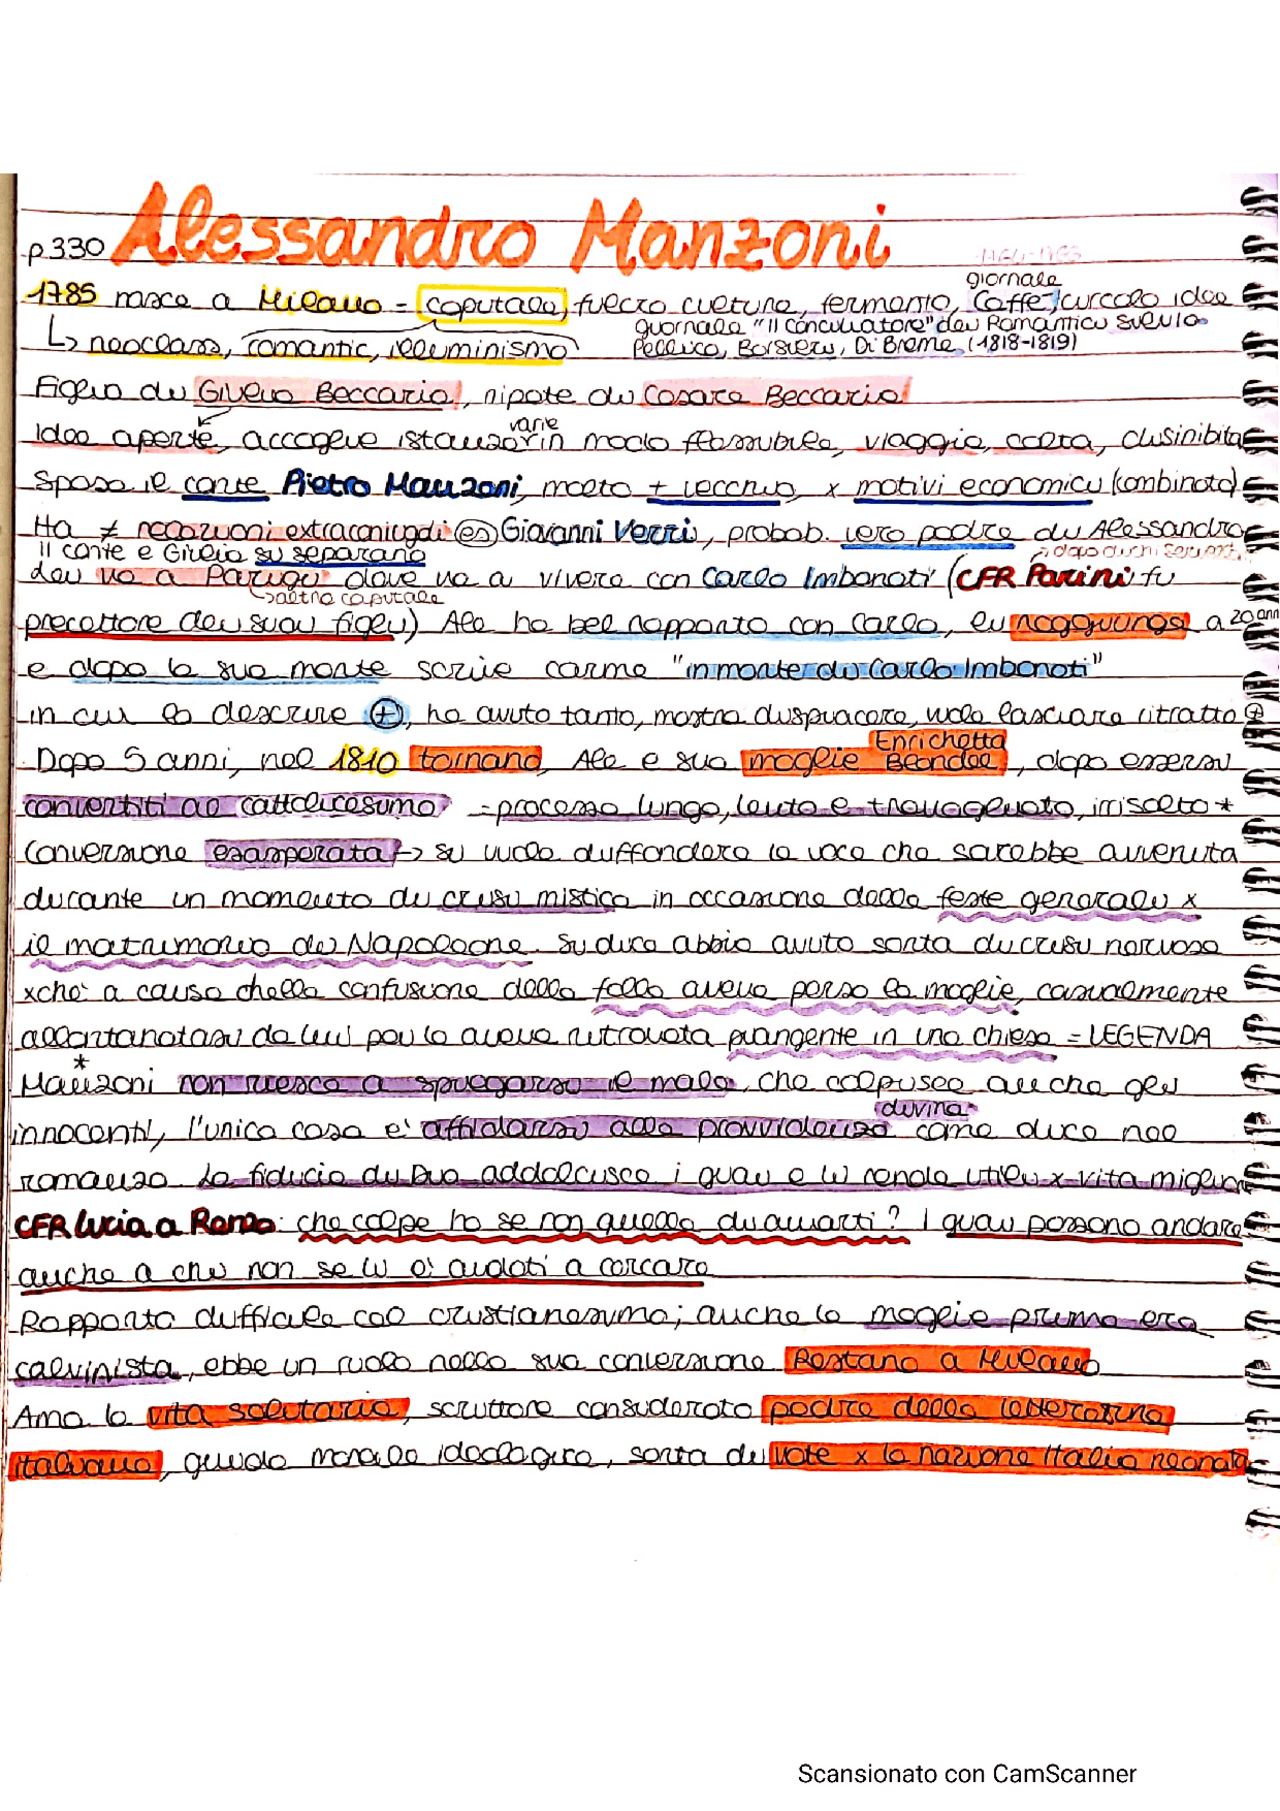 p 330 Alessandro Manzoni
giornale
1785 nasce a Milano = capitale, fulcro cultura, fermento, Caffè, circolo idee
giornale "Il Conciliatore" dei Romantici Silvio
↳ neoclass, romantic, illuminismo
Pellico, Borsieri, Di Breme (1818-1819)
Figlio di Giulia Beccaria, nipote di Cesare Beccaria
varie
Idee aperte, accoglie istanze in modo flessibile, viaggia, colta, disinibita
Sposa il conte Pietro Manzoni, molto + vecchio, x motivi economici (combinato)
Ha ≠ relazioni extraconiugali es Giovanni Verri, probab. vero padre di Alessandro
Il conte e Giulia si separano
lei va a Parigi dove va a vivere con Carlo Imbonati (CFR Parini fu
↳ altra capitale
precettore dei suoi figli) Ale ha bel rapporto con Carlo, li raggiunge a 20 anni
e dopo la sua morte scrive carme "in morte di Carlo Imbonati"
in cui lo descrive +, ha avuto tanto, mostra dispiacere, vuole lasciare ritratto +
Enrichetta
Dopo 5 anni, nel 1810 tornano, Ale e sua moglie Blondel, dopo essersi
convertiti al cattolicesimo = processo lungo, lento e travagliato, irrisolto *
Conversione esasperata → si vuole diffondere la voce che sarebbe avvenuta
durante un momento di crisi mistica in occasione delle feste generali x
il matrimonio di Napoleone. Si dice abbia avuto sorta di crisi nervosa
xchè a causa della confusione della folla aveva perso la moglie, casualmente
allontanatasi da lui poi la aveva ritrovata piangente in una chiesa = LEGENDA
*
Manzoni non riesce a spiegarsi il male, che colpisce anche gli
divina
innocenti, l'unica cosa è affidarsi alla provvidenza come dice nel
romanzo. La fiducia di Dio addolcisce i guai e li rende utili x vita migliore
CFR Lucia a Renzo: che colpe ho se non quella di amarti? I guai possono andare
anche a chi non se li è andati a cercare
Rapporto difficile col cristianesimo; anche la moglie prima era
calvinista, ebbe un ruolo nella sua conversione Restano a Milano
Ama la vita solitaria, scrittore considerato padre della letteratura
italiana, guida morale ideologica, sorta di vate x la nazione Italia neonata
Scansionato con CamScanner